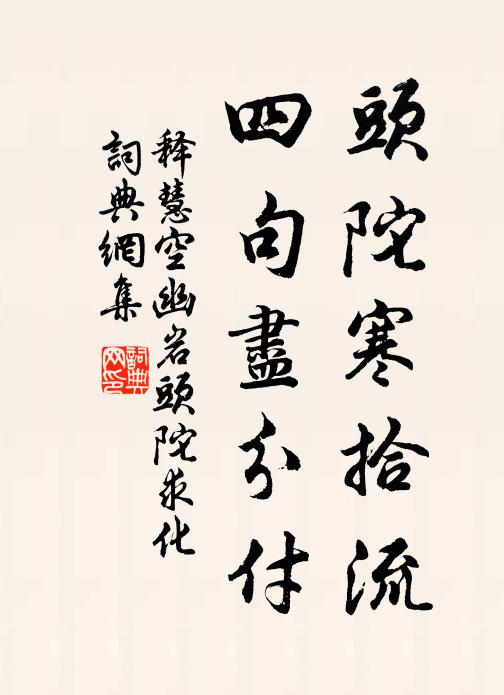 頭陀寒拾流
四句盡分付
释慧空幽岩頭陀求化
詞典網集
詞典
网印